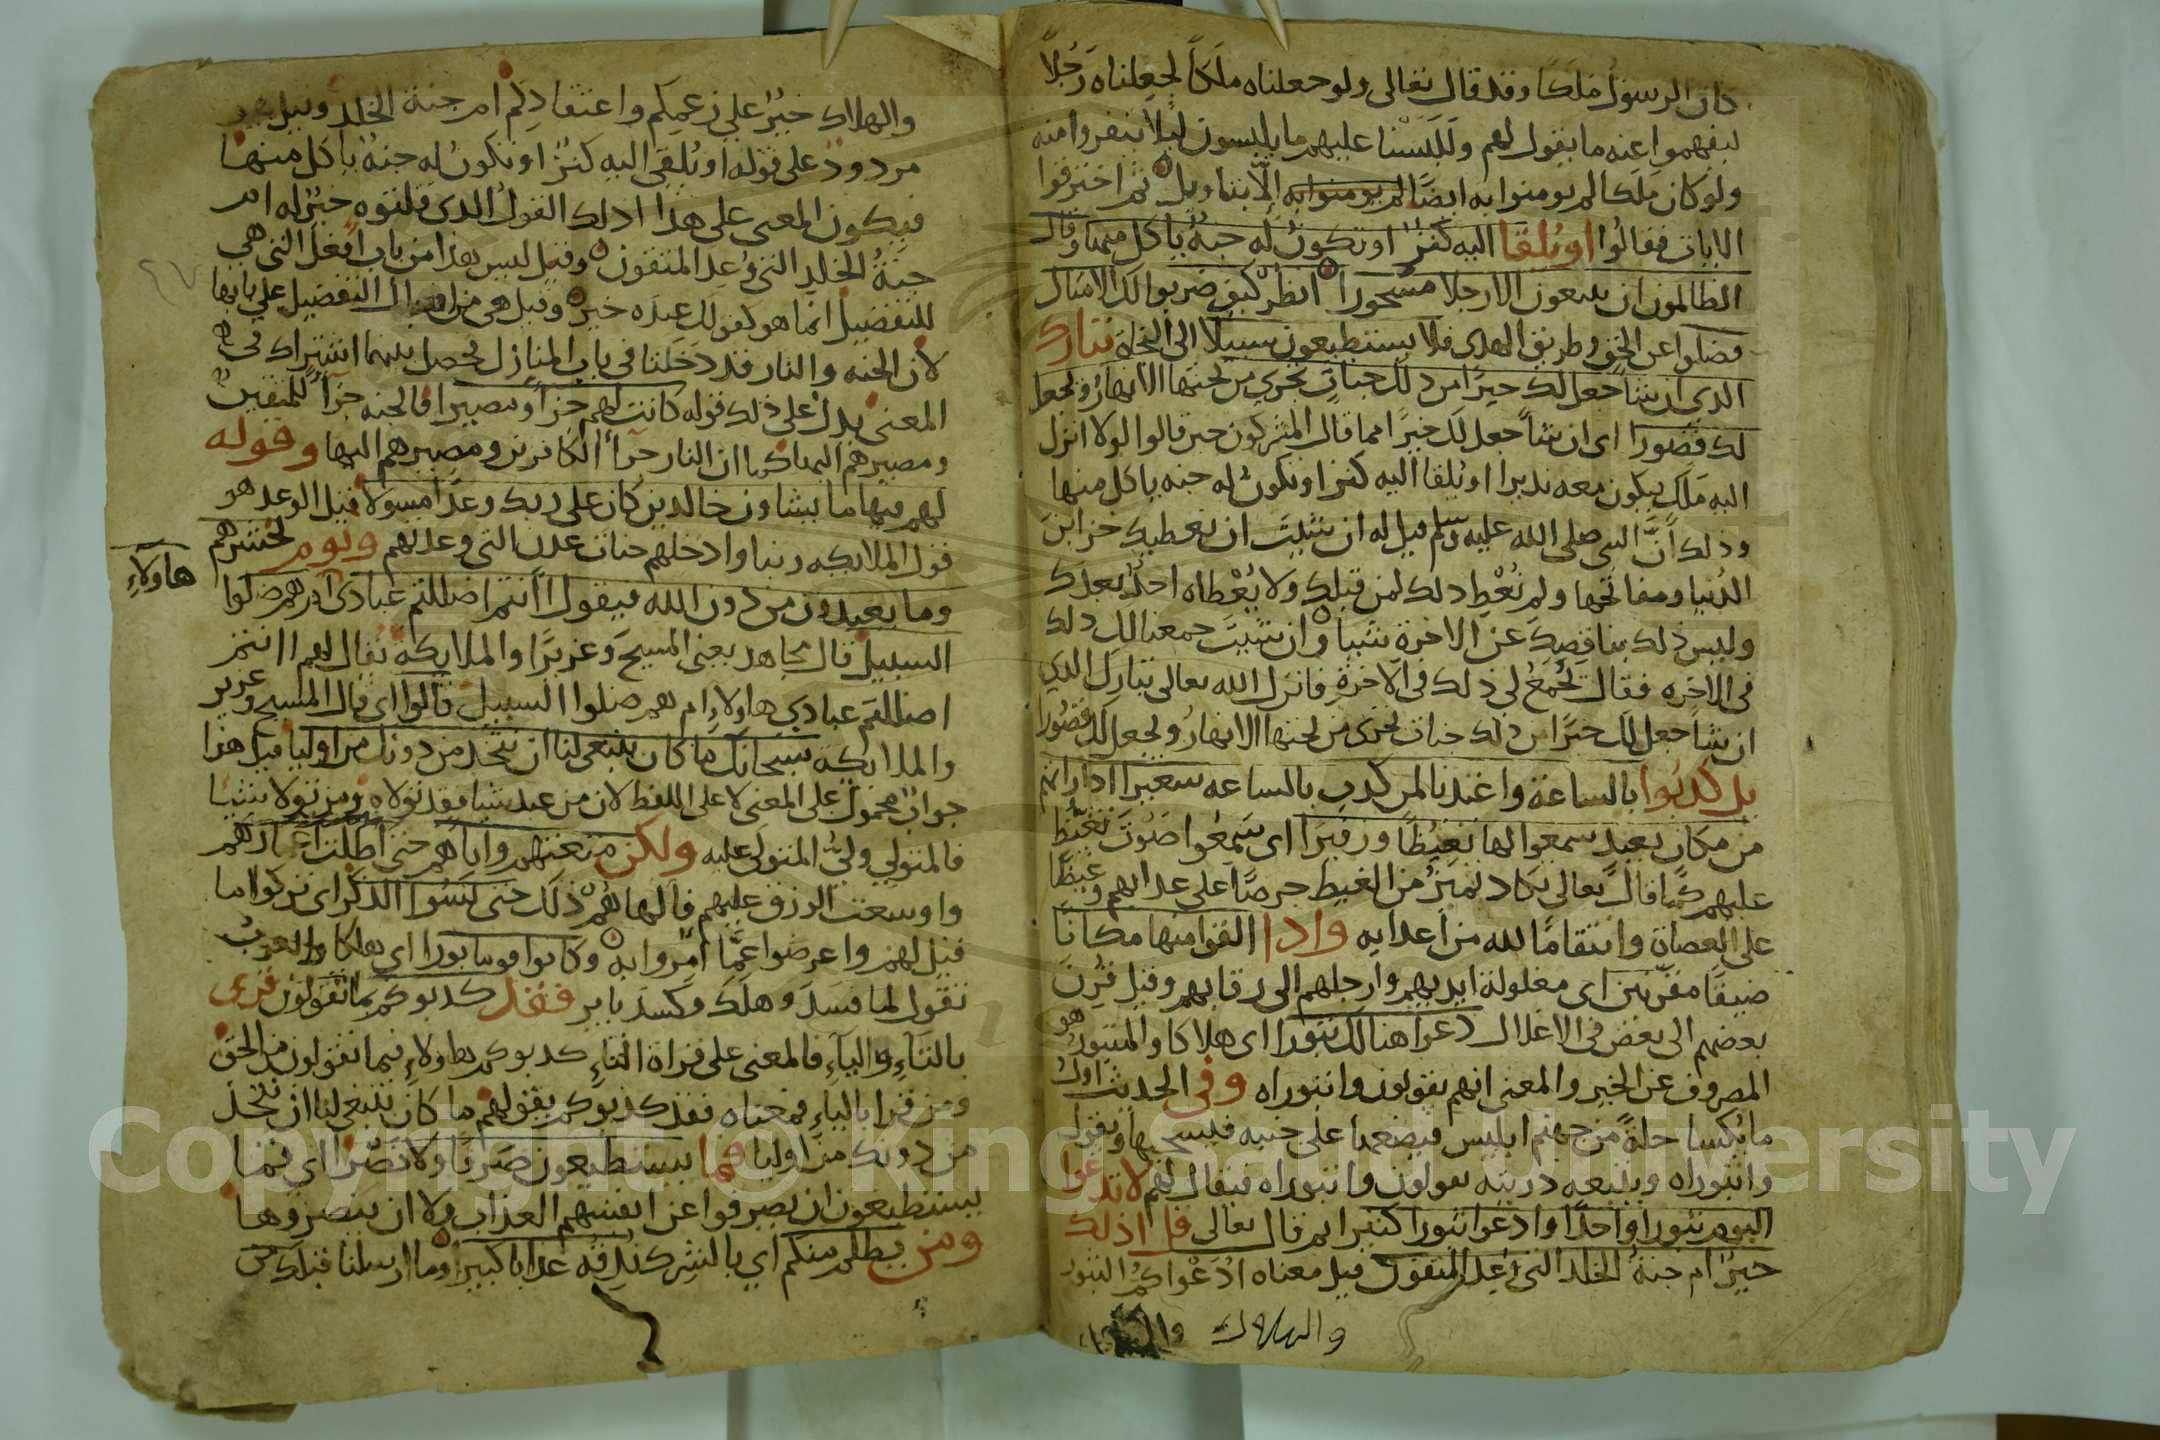 كان الرسول ملكا وقد قال تعالى ولو جعلناه ملَكاً لجعلناه رَجُلاً
ليفهموا عنه ما يقول لهم وللَبَسْنا عليهم ما يلبسون ليلا ينفروا منه
ولو كان ملكا لم يومنوا به ايضًا لم يومنوا به الا بتاويل ثم اخترقوا
الايات فقالوا او يُلقا اليه كنز او تكونُ له جنةٌ ياكل منها وقال
الظالمون ان تتبعون الا رجلا مسحورا انظر كيف ضربوا لك الامثال
فضلوا عن الحق وطريق الهدى فلا يستطيعون سبيلا الى النجاة تبارك
الذي ان شا جعل لك خيرًا من ذلك جناتٍ تجري من تحتها الانهارُ ويجعل
لك قصورا اى ان شا جعل لك خيرًا مما قال المشركون حين قالوا لولا انزل
اليه ملَك فيكون معه نذيرا او يُلقا اليه كنز او تكونُ له جنه ياكل منها
وذلك أنَّ النبى صلى الله عليه وسلم قيل له ان شيتَ ان نعطيك خزاينَ
الدُنيا ومفاتحها ولم نُعْطِ ذلك لمن قبلك ولا يُعْطاه احدٌ بعدك
وليس ذلك بناقصِكَ عن الاخرة شيا وان شيتَ جمعنا لك ذلك
فى الاخره فقال تُجْمَعُ لي ذلك فى الاخرةِ فانزل الله تعالى تبارك الذي
ان شا جعل لك خيرًا من ذلك جنات تجرى من تحتها الانهارُ ويجعل لك قصُورا
بل كذبُوا بالساعة واعتدنا لمن كذب بالساعه سعيرا اذا راتهم
من مكان بعيد سمعوا لها تغيُظًا وزفيرًا اى سَمِعُوا صَوْتَ تغيُّظ
عليهم كما قال تعالى تكاد تميزُ من الغيظ حرصًا على عدابهم وغيظًا
على العصاة وانتقامًا لله من اعدايه واذا القوا منها مكانًا
ضيقًا مقرنين اى مغلولة ايديهم وارجلهم الى رقابهم وقيل قُرِنَ
بعضهم الى بعض فى الاغلال دعوا هنالك ثبورا اى هلاكا والمثبورُ هو
المصروف عن الخير والمعنى انهم يقولون واثبوراه وفى الحديث اول
ما يُكسا حلةً من جهنم ابليس فيضعها على جنبه فيسحبها ويقول
واثبوراه ويتبعه ذريته يقولون واثبوراه فيقال لهم لا تدعوا
اليوم ثبورا واحدًا وادعوا ثبورا كثيرا ثم قال تعالى قل اذلك
خيرٌ ام جنةُ الخلد التى وُعِد المتقون قيل معناه ادَعْواكمُ الثبور
والهلاك
والهلاك خيرٌ على زعمِكم واعتقادِكم ام جنة الخلد وقيل
مردودٌ على قوله او يُلقَى اليه كنزٌ او تكونُ له جنةٌ ياكل منها
فيكون المعنى على هذا اذلك القولُ الذى قلتوه خيرٌ له ام
جنةُ الخلدِ التى وُعِد المتقون وقيل ليس هذا من باب افعل التى هي
للتفضيل انما هو كقولك عنده خير وقيل هى من افعال التفضيل على بابها
لان الجنه والنار قد دَخَلتا فى باب المنازل فحصل بينهما اشتراك فى
المعنى يدل على ذلك قوله كانت لهم جزآً ومصيرا فالجنه جزآُ للمتقين
ومصيرهم اليها كما ان النار جزآُ الكافرين ومصيرهم اليها وقوله
لهم فيها ما يشاون خالدين كان على ربك وعدًا مسولا قيل الوعد هو
قول الملايكه ربنا وادخلهم جنات عدن التى وعدتهم ويوم نحشرهم
وما يعبدون من دون الله فيقول اانتم اضللتم عبادى ام هم ضلوا
هاولآءِ
السبيل قال مجاهد يعنى المسيحَ وعزيرًا والملايكة يقال لهم اانتم
اضللتم عبادي هاولاءِ ام هم ضلوا السبيل قالوا اى قال المسيح وعزير
والملايكه سبحانك ما كان ينبغى لنا ان نتخذ من دونك من اوليا قيل هذا
جوابٌ محمول على المعنى لا على اللفظ لان من عبد شيا فقد تولاه ومن تولا شيا
فالمتولي وليُّ المتولَى عليه ولكن متعتهم واباهم حتى اطلت اعمارَهم
واوسعت الرزق عليهم فالهاهُمْ ذلك حتى نسُوا الذكرَ اى تركوا ما
قيل لهم واعرضوا عمَّا اُمِرُوا به وكانوا قوما بورا اى هلكا والعربُ
تقول لما فسدَ وهلَك وكسد باير فقد كذبوكم بما تقولون قرى
بالتآءِ والياءِ فالمعنى على قراة التآءِ كذبوكم هاولاءِ فيما تقولون من الحق
ومن قرا بالياءِ فمعناه فقد كذبوكم بقولهم ما كان ينبغى لنا ان نتخذ
من دونك من اوليا فما يستطيعون صَرْفًا ولا نَصْرًا اى فما
يستطيعون ان يصرفوا عن انفسهم العذاب ولا ان ينصروها
ومن يظلم منكم اي بالشرك نُذِقْه عذابا كبيرا وما ارسلنا قبلك من
Copyright © King Saud University